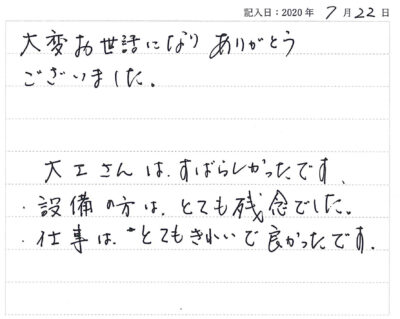 記入日：2020年 7月22日
大変お世話になり ありがとう
ございました。
大工さんは、すばらしかったです、
・設備の方は、とても残念でした。
・仕事は、とてもきれいで良かったです.